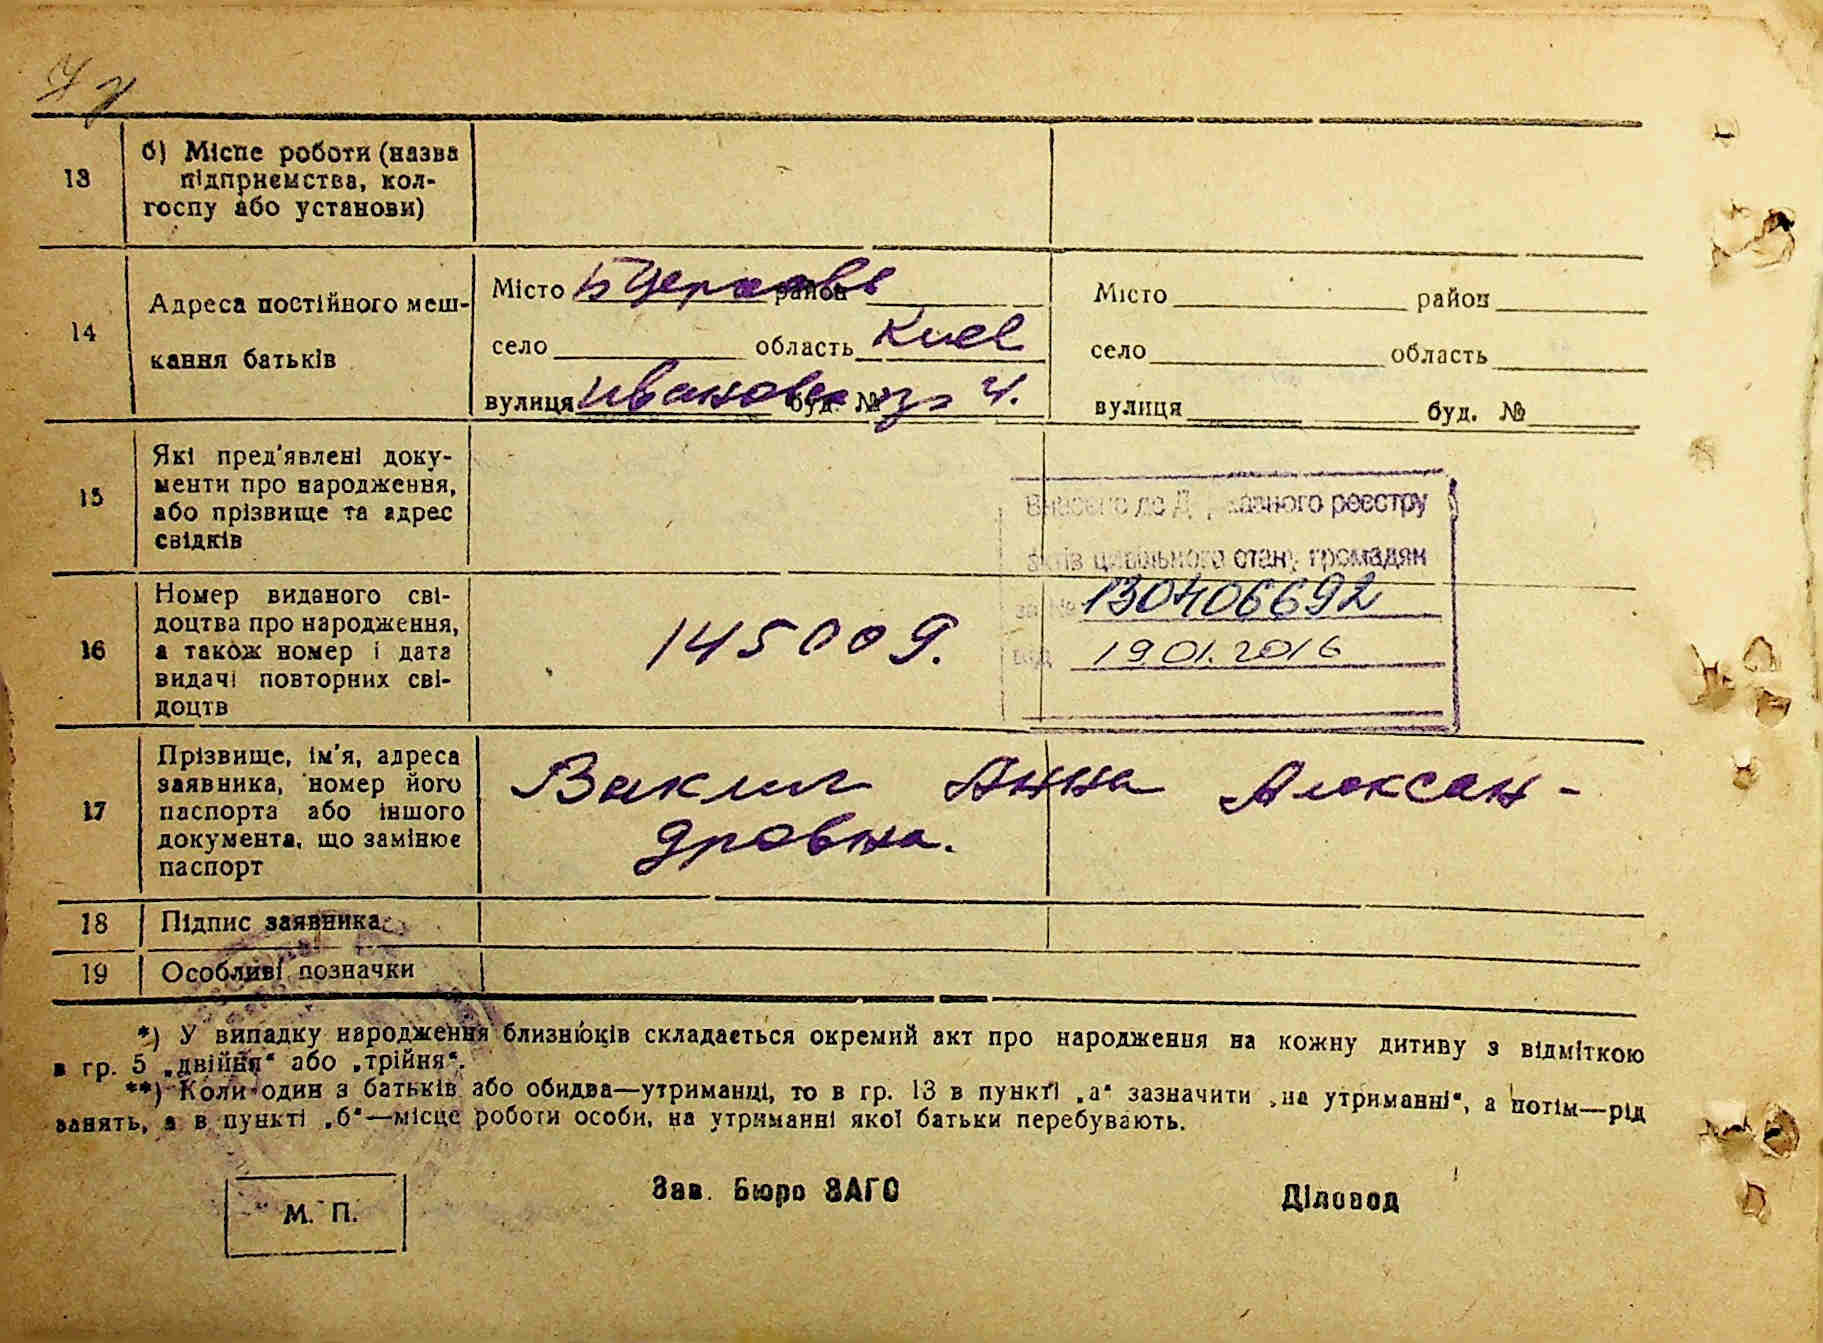 13
б) Місце роботи (назва
підприємства, кол-
госпу або установи)
14
Адреса постійного меш-
кання батьків
Місто Б Церковь район
село область Киев
вулиця буд. № 4.
Місто район
село область
вулиця буд. №
15
Які пред'явлені доку-
менти про народження,
або прізвище та адрес
свідків
Внесено до Державного реєстру
актів цивільного стану громадян
за № 130406692
від 19 01. 2016
16
Номер виданого сві-
доцтва про народження,
а також номер і дата
видачі повторних сві-
доцтв
145009.
17
Прізвище, ім'я, адреса
заявника, номер його
паспорта або іншого
документа, що замінює
паспорт
Ваклич Анна Алексан-
дровна.
18 Підпис заявника
19 Особливі позначки
*) У випадку народження близнюків складається окремий акт про народження на кожну дитину з відміткою
в гр. 5 „двійня“ або „трійня“.
**) Коли один з батьків або обидва—утриманці, то в гр. 13 в пункті „а“ зазначити „на утриманні“, а потім—рід
занять, а в пункті „б“—місце роботи особи, на утриманні якої батьки перебувають.
М. П.
Зав. Бюро ЗАГС
Діловод